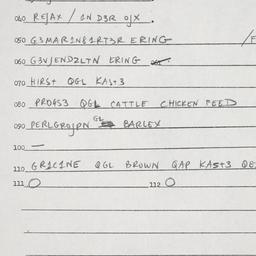 040 REJAX / 1N D3R OJX.
050 G3MAR1N81RT3R ERING /F
060 G3VJENDZLTN ERING
070 HIRST QGL KAST3
080 PROGS3 QGL CATTLE CHICKEN FEED
090 PERLGROJPN GL BARLEX
100 —
110 GR1C1NE QGL BROWN QAP KAST3 QE
111 O 112 O